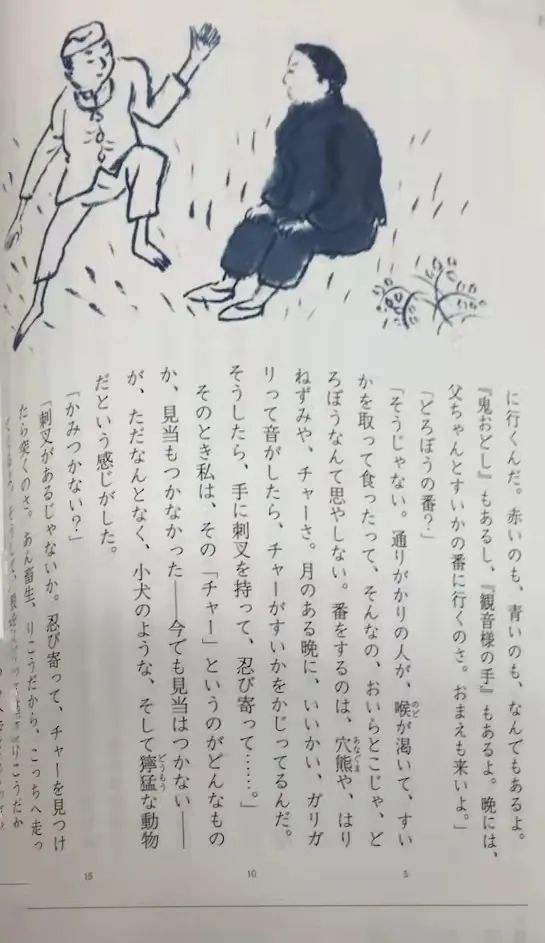 に行くんだ。赤いのも、青いのも、なんでもあるよ。
『鬼おどし』もあるし、『観音様の手』もあるよ。晩には、
父ちゃんとすいかの番に行くのさ。おまえも来いよ。」
「どろぼうの番?」
「そうじゃない。通りがかりの人が、喉が渇いて、すい
かを取って食ったって、そんなの、おいらとこじゃ、ど
ろぼうなんて思やしない。番をするのは、穴熊や、はり
ねずみや、チャーさ。月のある晩に、いいかい、ガリガ
リって音がしたら、チャーがすいかをかじってるんだ。
そうしたら、手に刺叉を持って、忍び寄って……。」
そのとき私は、その「チャー」というのがどんなもの
か、見当もつかなかった――今でも見当はつかない――
が、ただなんとなく、小犬のような、そして獰猛な動物
だという感じがした。
「かみつかない?」
「刺叉があるじゃないか。忍び寄って、チャーを見つけ
たら突くのさ。あん畜生、りこうだから、こっちへ走っ
のど
あなぐま
どうもう
5
10
15